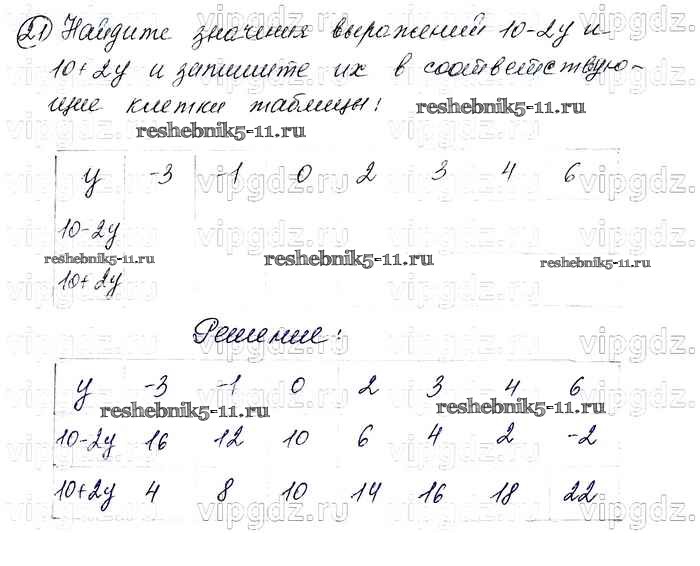 21 Найдите значения выражений 10-2y и
10+2y и запишите их в соответствую-
щие клетки таблицы:
reshebnik5-11.ru
reshebnik5-11.ru
y -3 -1 0 2 3 4 6
10-2y
reshebnik5-11.ru reshebnik5-11.ru reshebnik5-11.ru
10+2y
Решение:
y -3 -1 0 2 3 4 6
reshebnik5-11.ru reshebnik5-11.ru
10-2y 16 12 10 6 4 2 -2
10+2y 4 8 10 14 16 18 22
vipgdz.ru